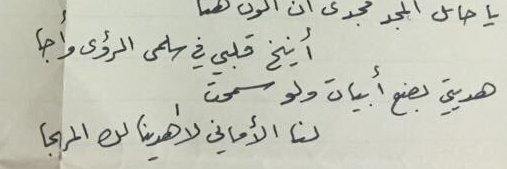 يا حائل المجد مجدى أن أكون هنا
أينخ قلبي في سلمى الرؤى وأجا
هديتي بضع أبيات ولو سمحت
لنا الأماني لأهدينا لك المهجا